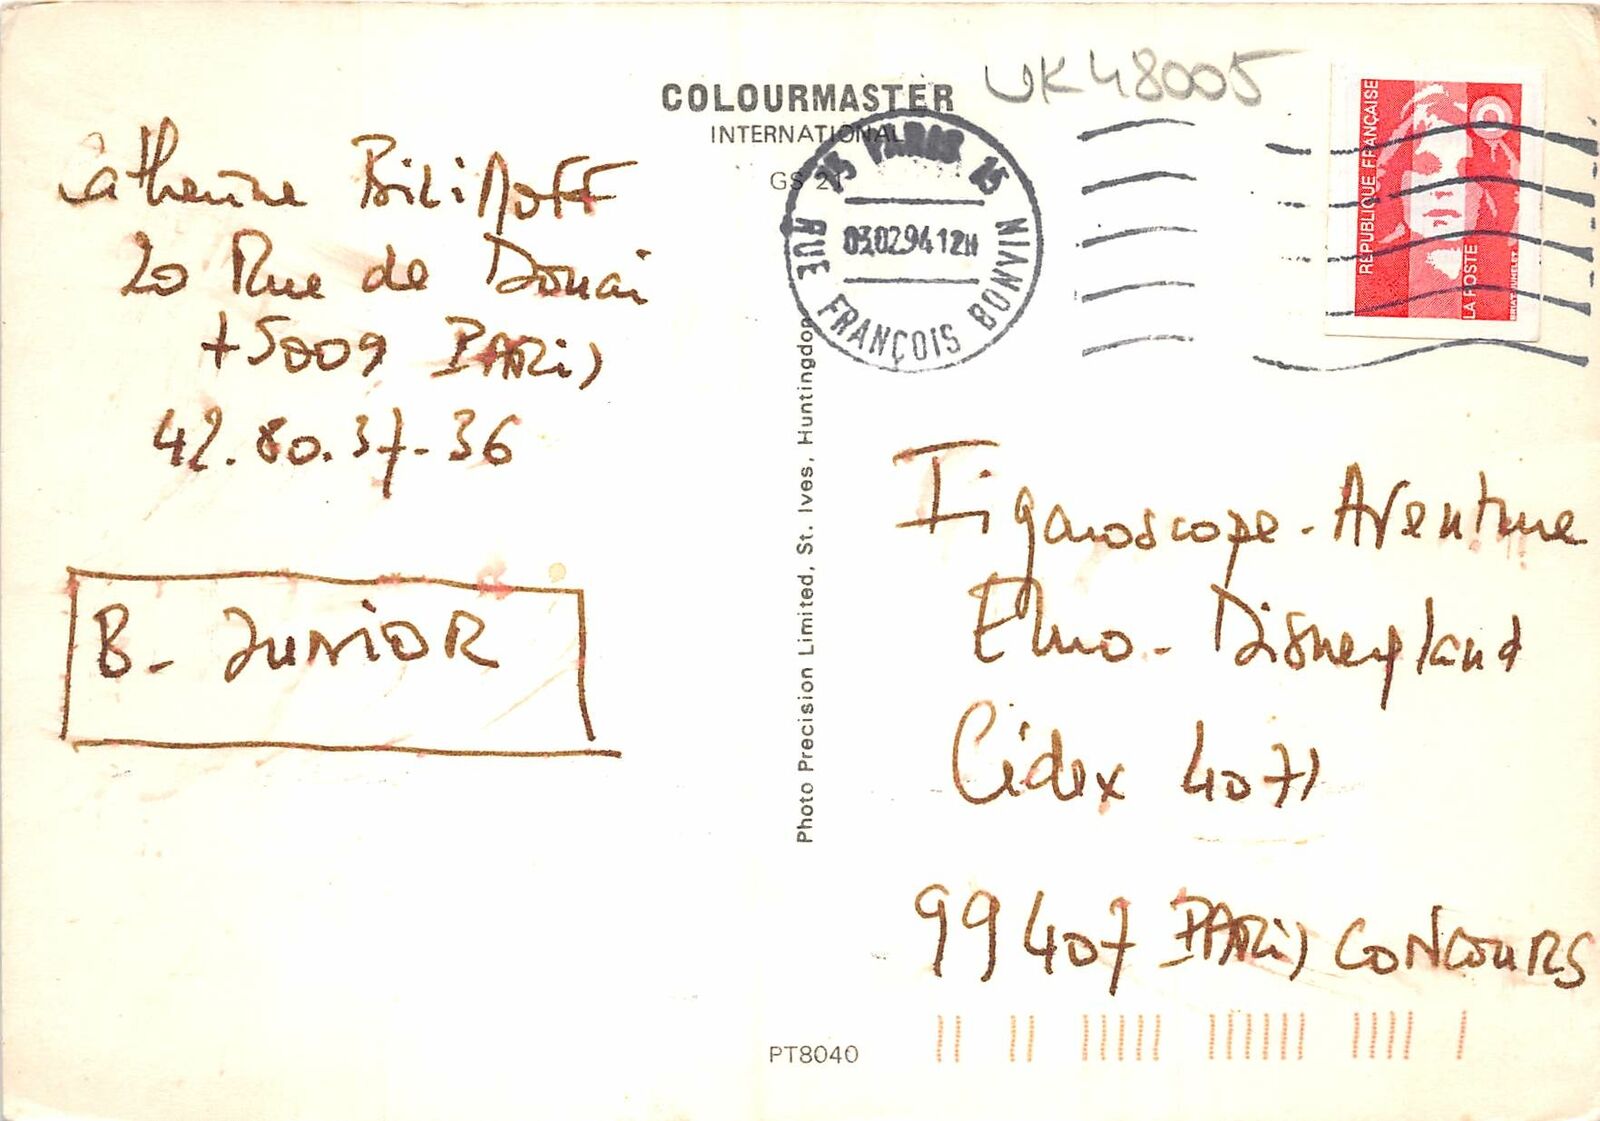 COLOURMASTER
INTERNATIONAL
GS 2
UK48005
75 PARIS 15
RUE FRANÇOIS BONVIN
03.02.94 12H
RÉPUBLIQUE FRANÇAISE
LA POSTE
Catherine
20 Rue de Douai
75009 PARIS
42.80.37-36
B- JUNIOR
Photo Precision Limited, St. Ives, Huntingdon
Figaroscope-Aventure
Euro-Disneyland
Cidex 4071
99407 PARIS CONCOURS
PT8040